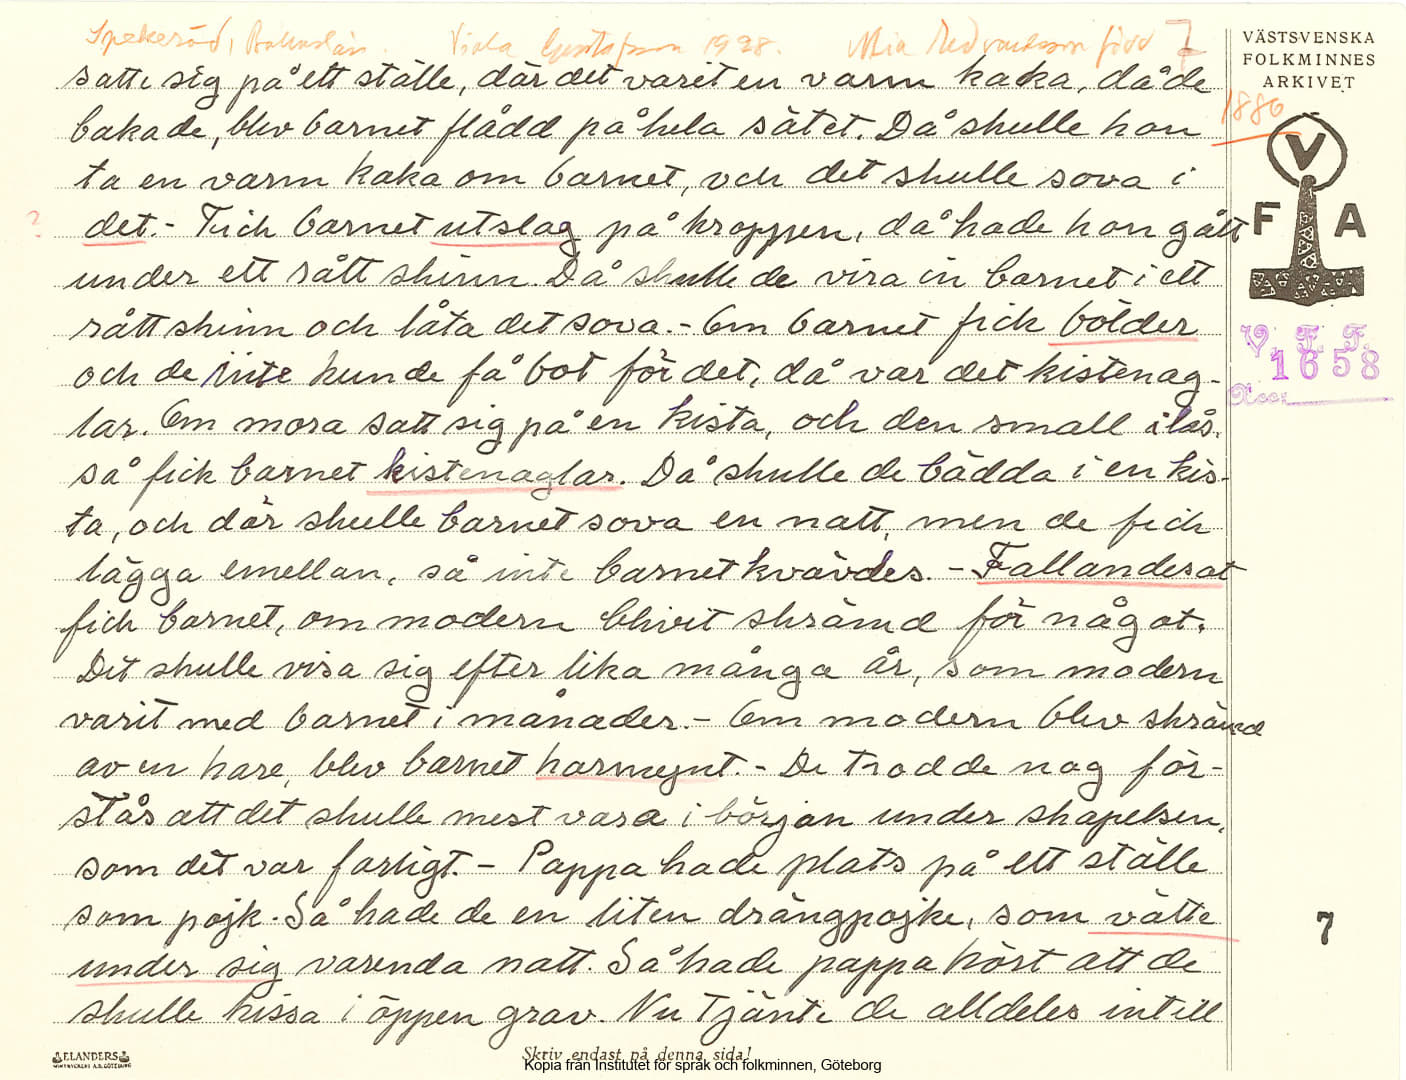 Spekeröd, Bohuslän. Viola Gustafsson 1928. Mia Hedvardsson född 7
1880
VÄSTSVENSKA
FOLKMINNES
ARKIVET
V
F A
V. F. F.
1658
Acc:
satte sig på ett ställe, där det varit en varm kaka, då de
bakade, blev barnet flådd på hela sätet. Då skulle hon
ta en varm kaka om barnet, och det skulle sova i
? det. - Fick barnet utslag på kroppen, då hade hon gått
under ett rått skinn. Då skulle de vira in barnet i ett
rått skinn och låta det sova. - Om barnet fick bölder
och de inte kunde få bot för det, då var det kistenag-
lar. Om mora satt sig på en kista, och den small i lås,
så fick barnet kistenaglar. Då skulle de bädda i en kis-
ta, och där skulle barnet sova en natt, men de fick
lägga emellan, så inte barnet kvävdes. - Fallanderot
fick barnet, om modern blivit skrämd för något.
Det skulle visa sig efter lika många år, som modern
varit med barnet i månader. - Om modern blev skrämd
av en hare, blev barnet harmynt. - De trodde nog för-
stås att det skulle mest vara i början under skapelsen,
som det var farligt. - Pappa hade plats på ett ställe
som pojk. Så hade de en liten drängpojke, som vätte
under sig varenda natt. Så hade pappa hört att de
skulle kissa i öppen grav. Nu tjänte de alldeles intill
7
ELANDERS
BOKTRYCKERI A.B. GÖTEBORG
Skriv endast på denna sida!
Kopia från Institutet för språk och folkminnen, Göteborg